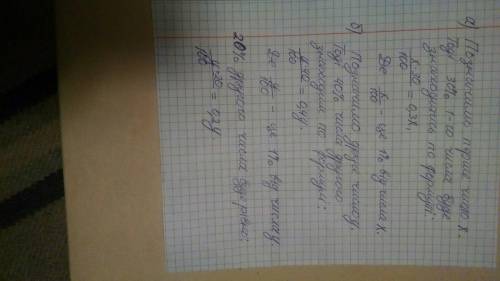 а) Позначимо перше число x.
Тоді 30% 1-го числа буде
знаходитись по формулі:
x·30/100 = 0,3x,
Де x/100 - це 1% від числа x.
б) Позначимо друге число y.
Тоді 40% числа другого
знаходим по формулі:
y·40/100 = 0,4y
Де y/100 - це 1% від числа y.
20% другого числа
y·20/100 = 0,2y